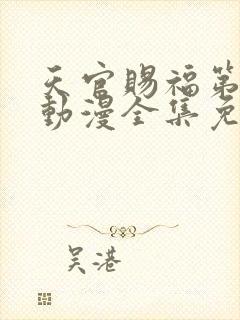 天官賜福第
動漫全集免
吴港